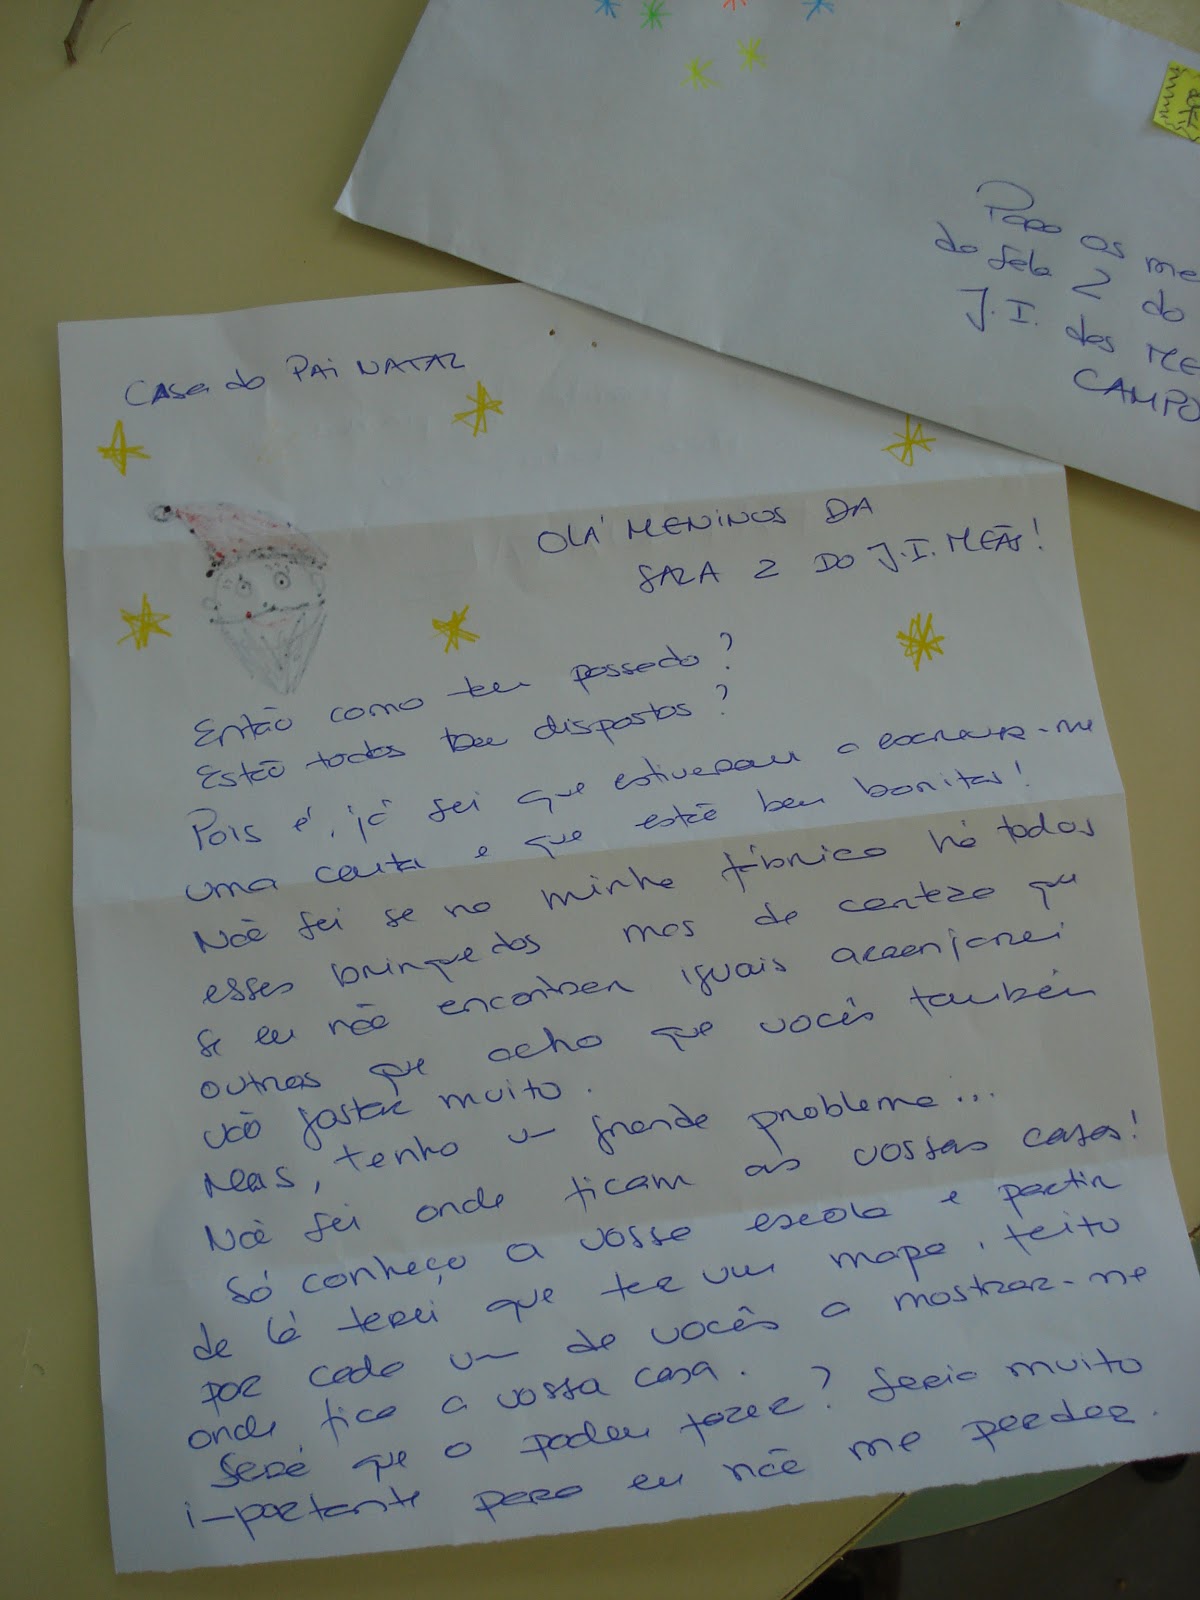 Para os me
da sala 2 do
J.I. das ME
CAMPO
Casa do PAi NATAL
OLÁ MENINOS DA
SALA 2 DO J.I. MEÃS!
Então como tem passado?
Estão todos bem dispostos?
Pois é, já sei que estiveram a escrever-me
uma carta e que estão bem bonitas!
Não sei se na minha fábrica há todos
esses brinquedos mas de certeza que
se eu não encontrar iguais arranjarei
outros que acho que vocês também
vão gostar muito.
Mas, tenho um grande problema...
Não sei onde ficam as vossas casas!
Só conheço a vossa escola e partir
de lá terei que ter um mapa, feito
por cada um de vocês a mostrar-me
onde fica a vossa casa.
Será que o podem fazer? Seria muito
importante para eu não me perder.